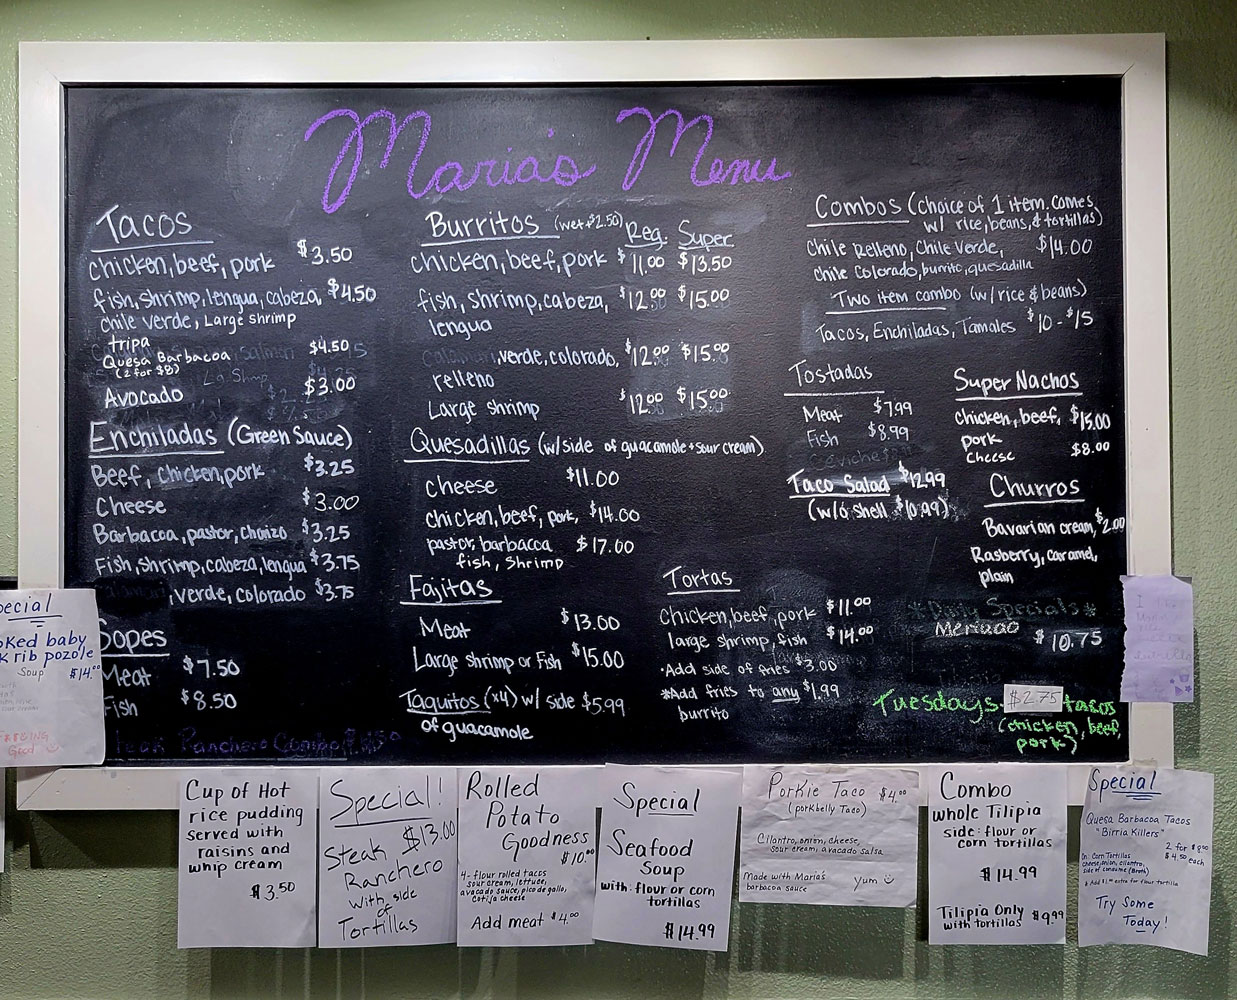 Maria's Menu
Tacos
chicken, beef, pork $3.50
fish, shrimp, lengua, cabeza, $4.50
chile verde, Large shrimp
tripa
Quesa Barbacoa $4.50
(2 for $8)
Avocado $3.00
Enchiladas (Green Sauce)
Beef, chicken, pork $3.25
Cheese $3.00
Barbacoa, pastor, chorizo $3.25
Fish, shrimp, cabeza, lengua $3.75
, verde, colorado $3.75
Sopes
Meat $7.50
Fish $8.50
Ranchero Combo
Burritos (wet+$2.50) Reg. Super
chicken, beef, pork $11.00 $13.50
fish, shrimp, cabeza, $12.00 $15.00
lengua
, verde, colorado, $12.00 $15.00
relleno
Large shrimp $12.00 $15.00
Quesadillas (w/side of guacamole + sour cream)
Cheese $11.00
chicken, beef, pork, $14.00
pastor, barbacca $17.00
fish, shrimp
Fajitas
Meat $13.00
Large shrimp or Fish $15.00
Taquitos (x4) w/ side $5.99
of guacamole
Tortas
chicken, beef, pork $11.00
large shrimp, fish $14.00
•Add side of fries $3.00
*Add fries to any $1.99
burrito
Combos (choice of 1 item. comes
w/ rice, beans, & tortillas)
Chile Relleno, Chile Verde, $14.00
chile Colorado, burrito, quesadilla
Two item combo (w/rice & beans)
Tacos, Enchiladas, Tamales $10-$15
Tostadas
Meat $7.99
Fish $8.99
Taco Salad $12.99
(w/o shell $10.99)
Super Nachos
chicken, beef, $15.00
pork
Cheese $8.00
Churros
Bavarian cream, $2.00
Rasberry, caramel,
plain
*Daily Specials*
Menudo $10.75
Tuesdays $2.75 tacos
(chicken, beef,
pork)
pecial
oked baby
k rib pozole
Soup $14.00
Good
Cup of Hot
rice pudding
served with
raisins and
whip cream
$3.50
Special!
Steak $13.00
Ranchero
with side
of
Tortillas
Rolled
Potato
Goodness
$10.00
4- flour rolled tacos
sour cream, lettuce,
avocado sauce, pico de gallo,
cotija cheese
Add meat $4.00
Special
Seafood
Soup
with: flour or corn
tortillas
$14.99
Porkie Taco $4.00
(porkbelly Taco)
Cilantro, onion, cheese,
sour cream, avacado salsa
Made with Maria's
barbacoa sauce Yum
Combo
whole Tilipia
side: flour or
corn tortillas
$14.99
Tilipia Only $9.99
with tortillas
Special
Quesa Barbacoa Tacos
"Birria Killers"
2 for $8.00
$4.50 each
On: Corn Tortillas
cheese, onion, cilantro,
side of consume (Broth)
* Add $1.00 extra for flour tortilla
Try Some
Today!